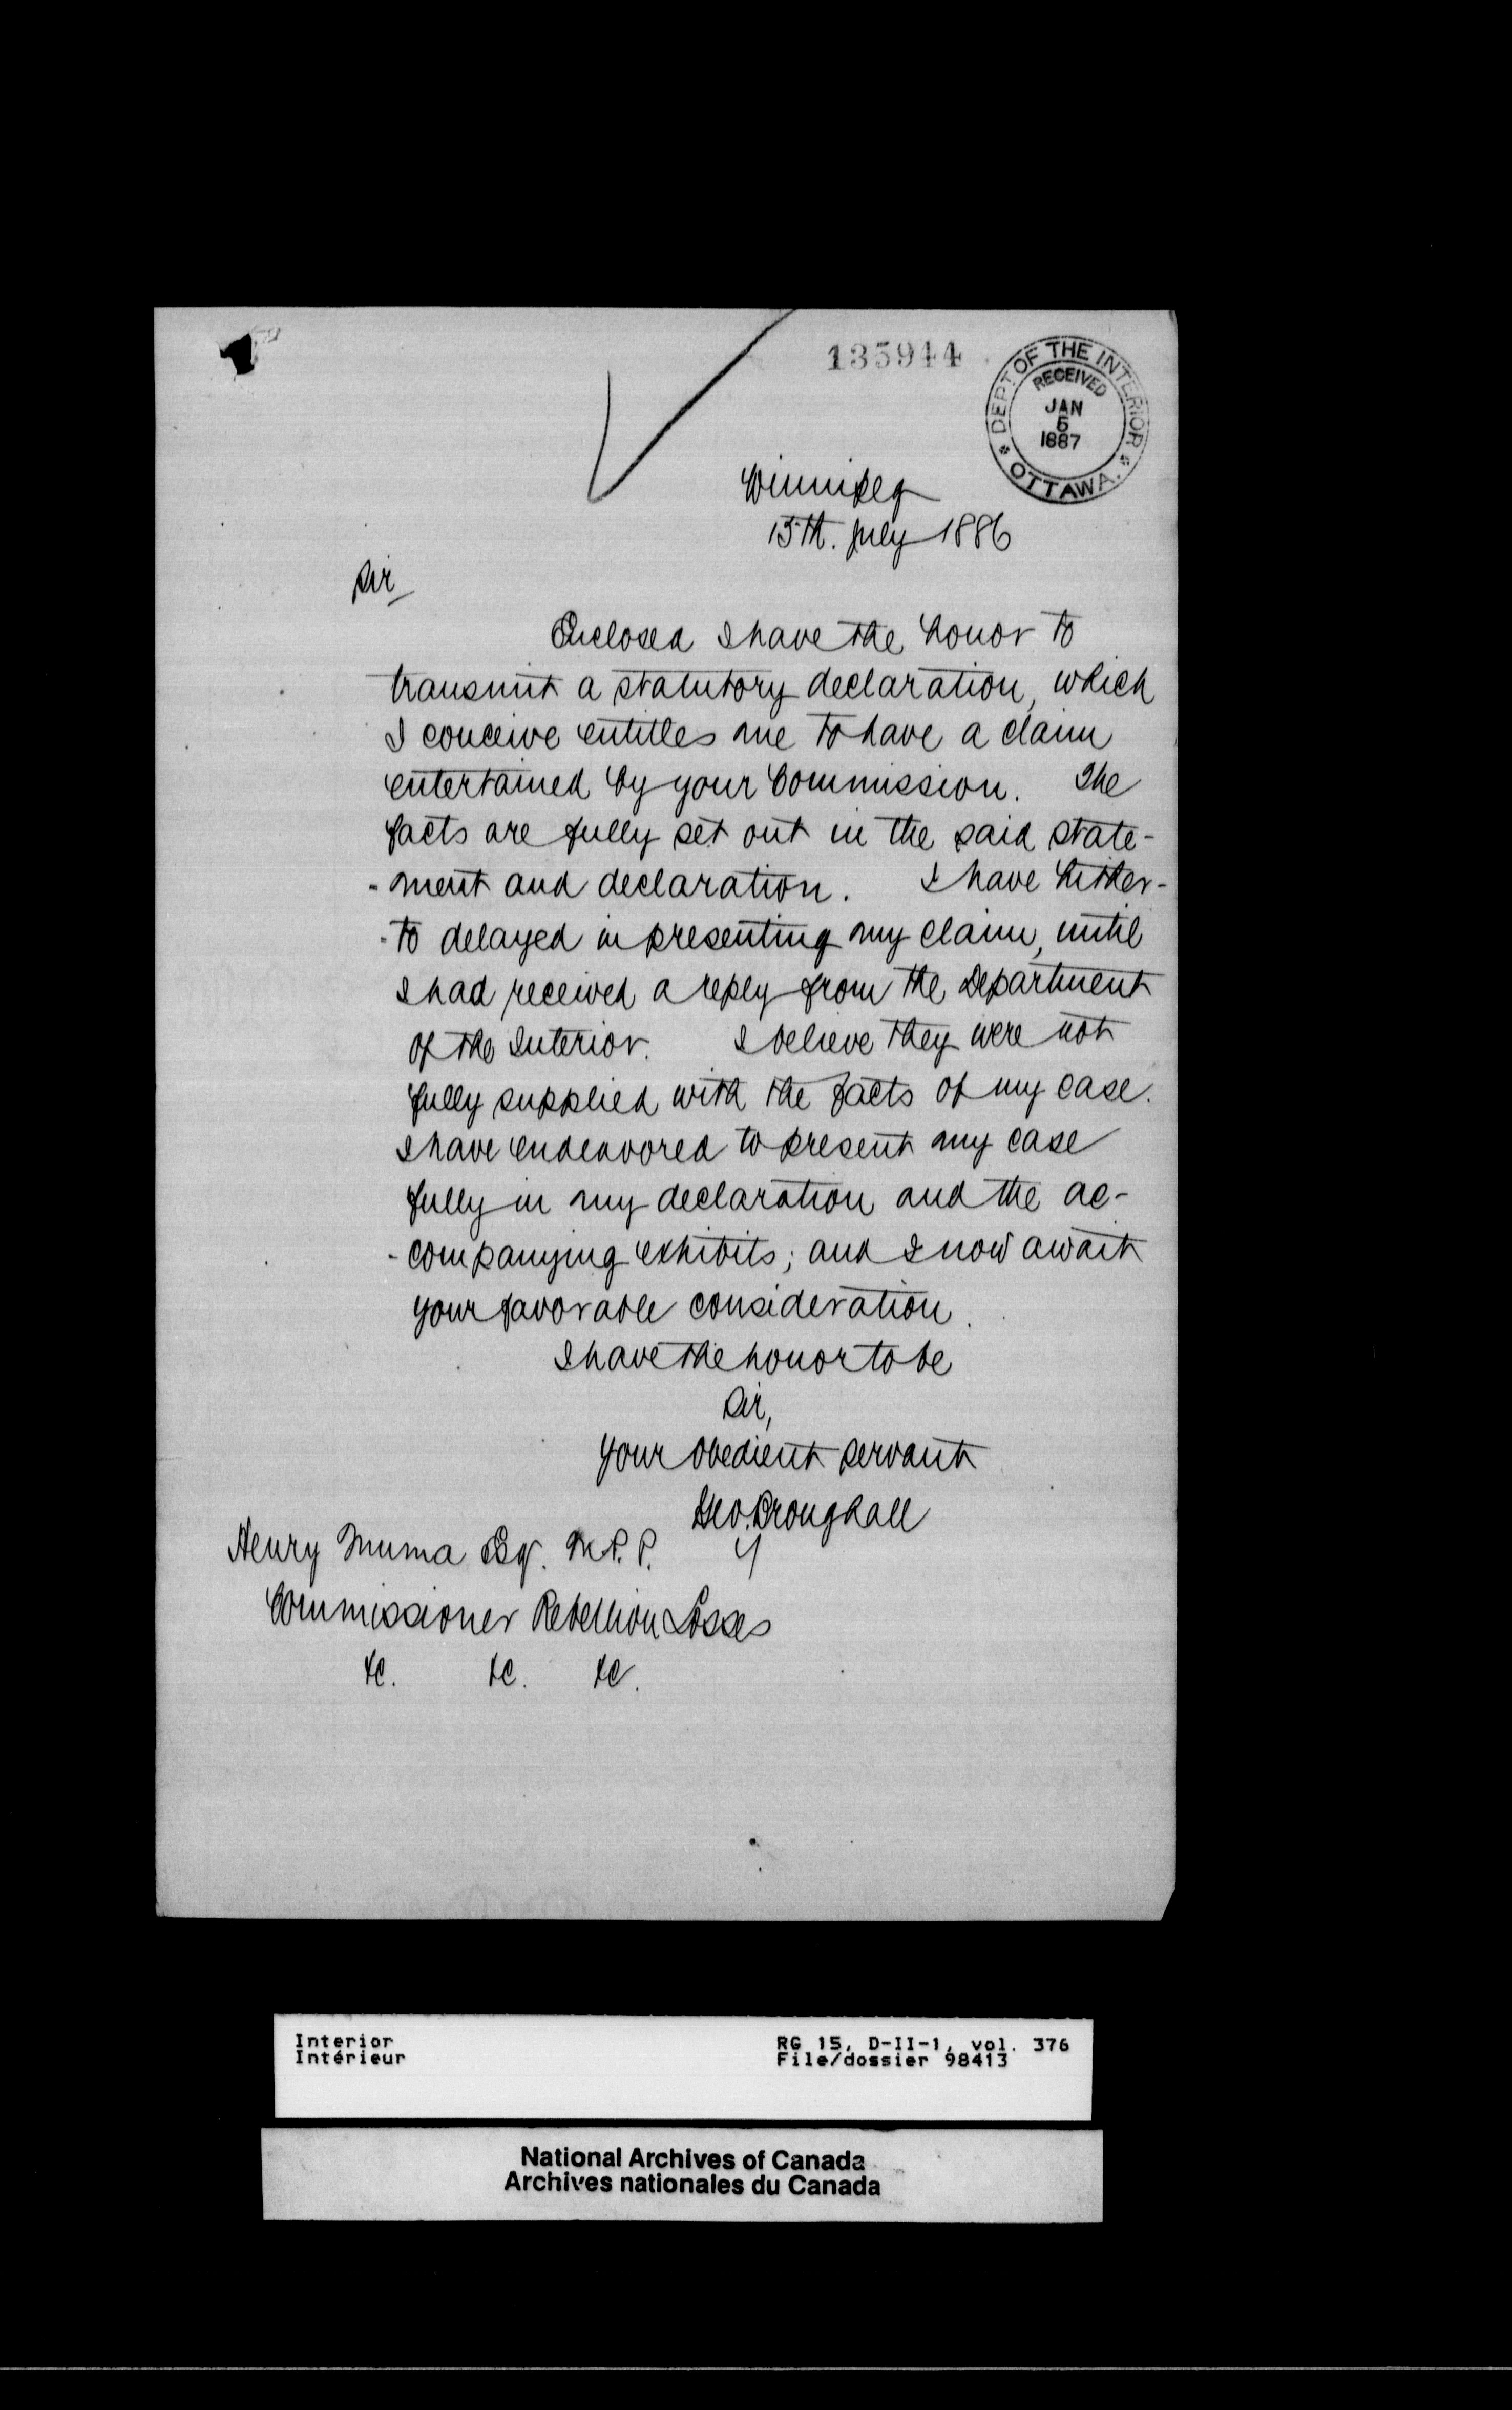 135944
DEPT OF THE INTERIOR
RECEIVED
JAN
5
1887
OTTAWA.
Winnipeg
15th. July 1886
Sir
Enclosed I have the honor to
transmit a statutory declaration, which
I conceive entitles me to have a claim
entertained by your Commission. The
facts are fully set out in the said state-
-ment and declaration. I have hither-
-to delayed in presenting my claim, until
I had received a reply from the Department
of the Interior. I believe they were not
fully supplied with the facts of my case.
I have endeavored to present my case
fully in my declaration and the ac-
-companying exhibits; and I now await
your favorable consideration.
I have the honor to be
Sir,
Your obedient servant
Geo. Broughall
Henry Muma Esq. M.P.P.
Commissioner Rebellion Losses
&c. &c. &c.
Interior
Intérieur
RG 15, D-II-1, vol. 376
File/dossier 98413
National Archives of Canada
Archives nationales du Canada